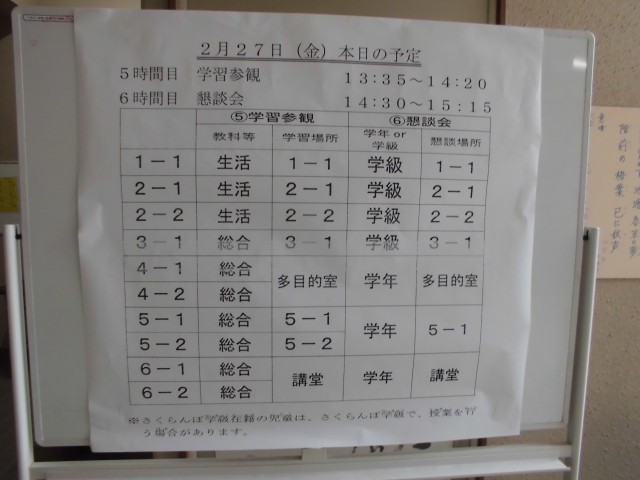 2月27日(金)本日の予定
5時間目 学習参観 13:35~14:20
6時間目 懇談会 14:30~15:15
⑤学習参観 ⑥懇談会
教科等 学習場所 学年or学級 懇談場所
1-1 生活 1-1 学級 1-1
2-1 生活 2-1 学級 2-1
2-2 生活 2-2 学級 2-2
3-1 総合 3-1 学級 3-1
4-1 総合 多目的室 学年 多目的室
4-2 総合
5-1 総合 5-1 学年 5-1
5-2 総合 5-2
6-1 総合 講堂 学年 講堂
6-2 総合
※さくらんぼ学級在籍の児童は、さくらんぼ学級で、授業を行
う場合があります。
階前の梧葉 已に秋声